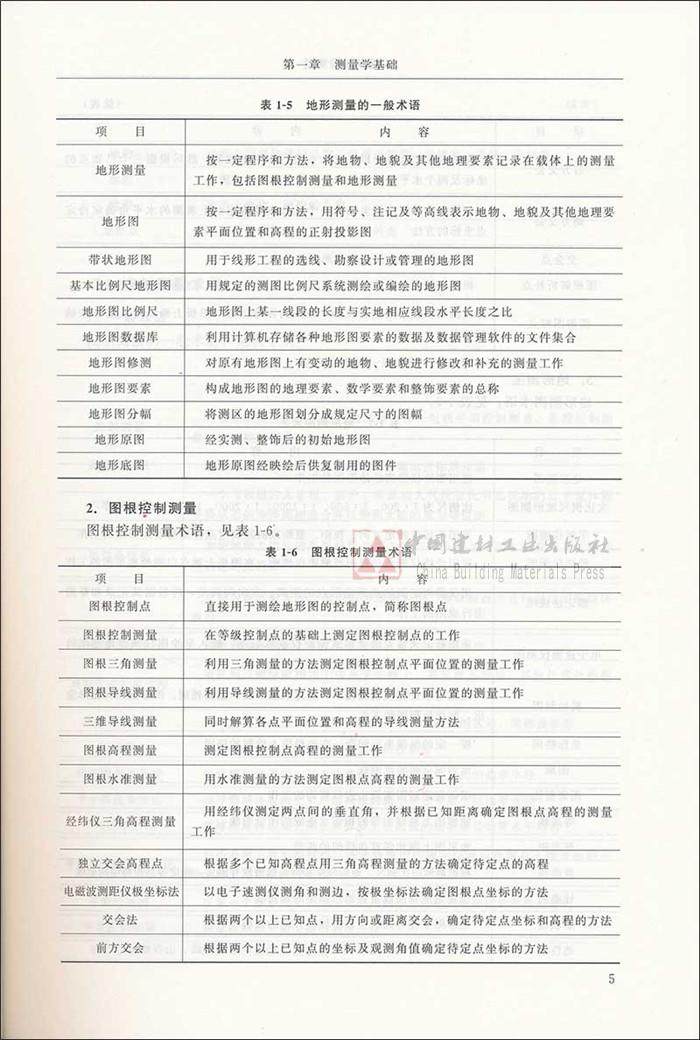 第一章 测量学基础
表 1-5 地形测量的一般术语
项 目 内 容
地形测量 按一定程序和方法，将地物、地貌及其他地理要素记录在载体上的测量
工作，包括图根控制测量和地形测量
地形图 按一定程序和方法，用符号、注记及等高线表示地物、地貌及其他地理要
素平面位置和高程的正射投影图
带状地形图 用于线形工程的选线、勘察设计或管理的地形图
基本比例尺地形图 用规定的测图比例尺系统测绘或编绘的地形图
地形图比例尺 地形图上某一线段的长度与实地相应线段水平长度之比
地形图数据库 利用计算机存储各种地形图要素的数据及数据管理软件的文件集合
地形图修测 对原有地形图上有变动的地物、地貌进行修改和补充的测量工作
地形图要素 构成地形图的地理要素、数学要素和整饰要素的总称
地形图分幅 将测区的地形图划分成规定尺寸的图幅
地形原图 经实测、整饰后的初始地形图
地形底图 地形原图经映绘后供复制用的图件
2. 图根控制测量
图根控制测量术语，见表 1-6。
中国建材工业出版社
China Building Materials Press
表 1-6 图根控制测量术语
项 目 内 容
图根控制点 直接用于测绘地形图的控制点，简称图根点
图根控制测量 在等级控制点的基础上测定图根控制点的工作
图根三角测量 利用三角测量的方法测定图根控制点平面位置的测量工作
图根导线测量 利用导线测量的方法测定图根控制点平面位置的测量工作
三维导线测量 同时解算各点平面位置和高程的导线测量方法
图根高程测量 测定图根控制点高程的测量工作
图根水准测量 用水准测量的方法测定图根点高程的测量工作
经纬仪三角高程测量 用经纬仪测定两点间的垂直角，并根据已知距离确定图根点高程的测量
工作
独立交会高程点 根据多个已知高程点用三角高程测量的方法确定待定点的高程
电磁波测距仪极坐标法 以电子速测仪测角和测边，按极坐标法确定图根点坐标的方法
交会法 根据两个以上已知点，用方向或距离交会，确定待定点坐标和高程的方法
前方交会 根据两个以上已知点的坐标及观测角值确定待定点坐标的方法
5